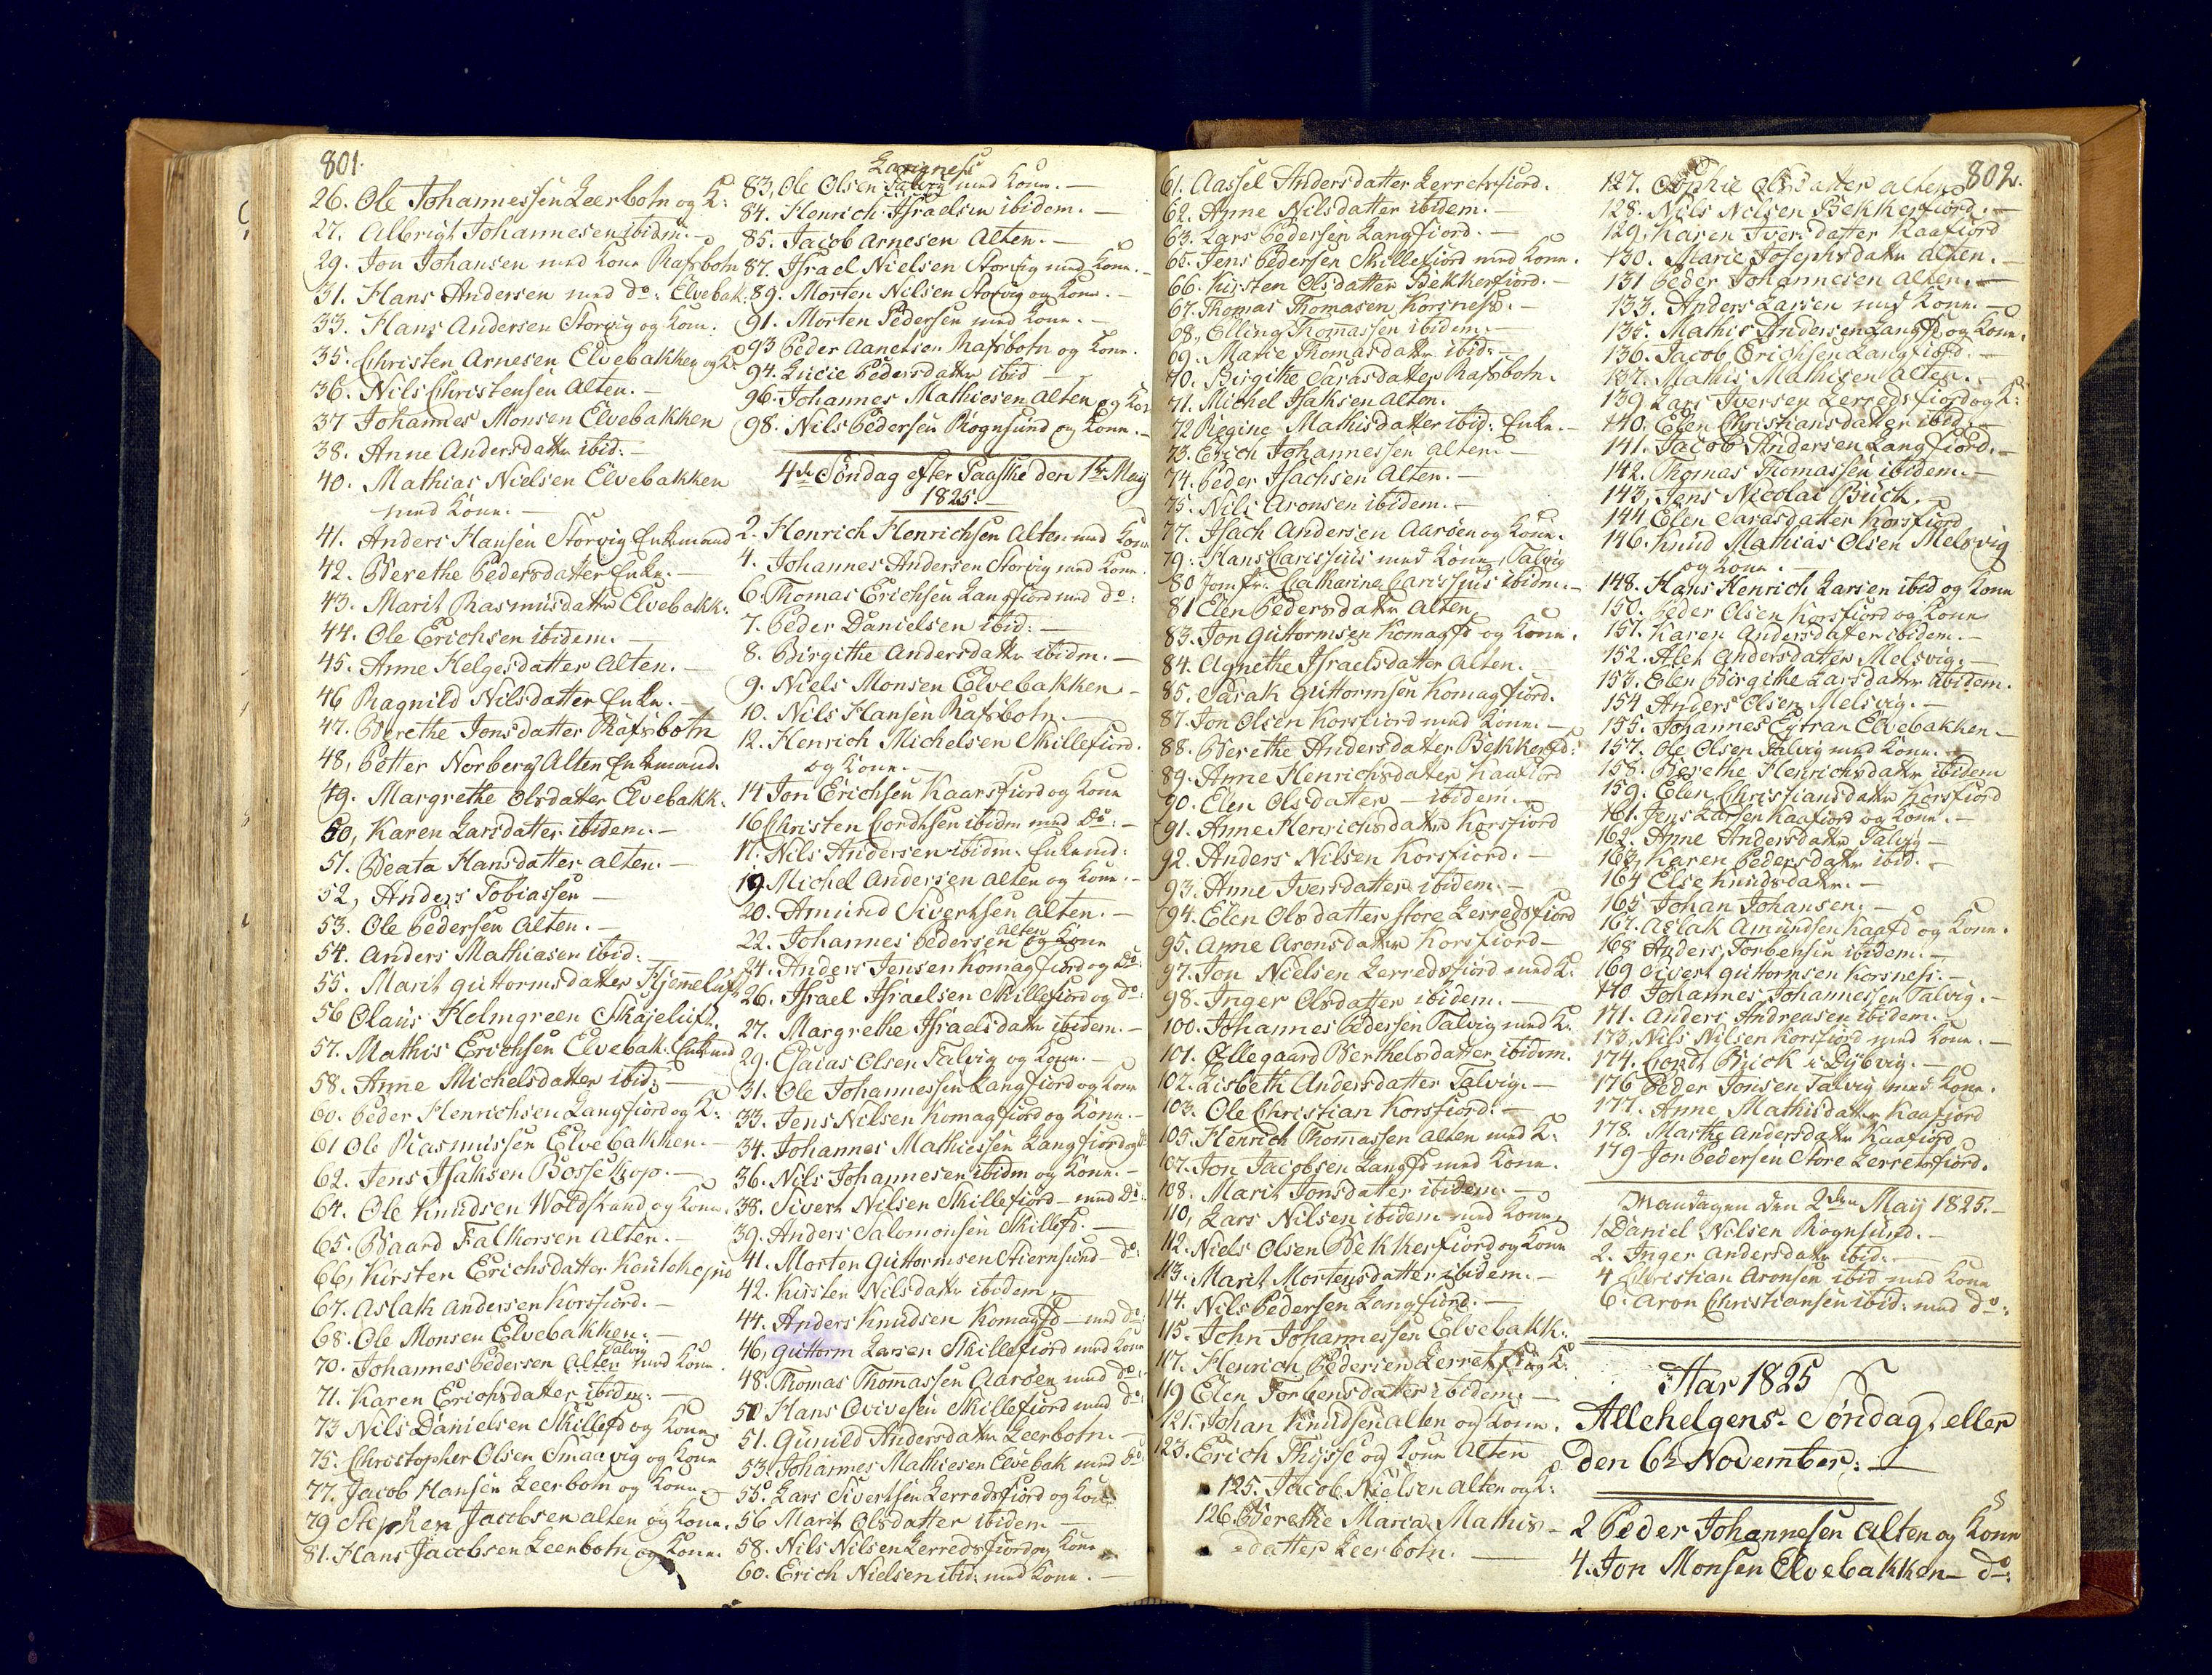 801.
26. Ole Johannessen Leerbotn og K:
27. Albrigt Johannesen ibidm: —
29. Jon Johansen med Kone Rafsbotn
31. Hans Andersen med do: Elvebak:
33. Hans Andersen Storvig og Kone.
35. Christen Arnesen Elvebakken og K:
36. Nils Christensen Alten. —
37 Johannes Monsen Elvebakken
38. Anne Andersdatter ibid: —
40. Mathias Nielsen Elvebakken
med Kone. —
41. Anders Hansen Storvig Enkemand
42. Berethe Pedersdatter Enke. —
43. Marit Rasmusdatter Elvebakk:
44. Ole Erichsen ibidem. —
45. Anne Helgesdatter Alten. —
46 Ragnild Nilsdatter Enke. —
47. Berethe Jonsdatter Rafsbotn
48, Petter Norberg Alten Enkemand.
49. Margrethe Olsdatter Elvebakk.
50, Karen Larsdatter ibidem. —
51. Beata Hansdatter Alten. —
52, Anders Tobiassen —
53. Ole Pedersen Alten. —
54. Anders Mathiasen ibid: —
55. Marit Guttormsdatter Hjemeluft
56 Olaus Holmgreen Skajeluft.
57. Mathis Erichsen Elvebak. Enkemd
58. Anne Michelsdatter ibid: —
60. Peder Henrichsen Langfiord og K:
61 Ole Rasmussen Elvebakken. —
62. Jens Isaksen Bossekop. —
64. Ole Knudsen Woldstrand og Kone.
65. Baard Falkorsen Alten. —
66, Kirsten Erichsdatter Koutokejno
67. Aslak Andersen Korsfiord. —
68. Ole Monsen Elvebakken. —
Talvig
70. Johannes Pedersen Alten med Kone.
71. Karen Erichsdatter ibidm: —
73 Nils Danielsen Skillefd og Kone.
75. Christopher Olsen Smaavig og Kone
77. Jacob Hansen Leerbotn og Kone. —
79 Stephen Jacobsen Alten og Kone.
81. Hans Jacobsen Leerbotn og Kone.
Langnes
83, Ole Olsen Talvig med Kone. —
84. Henrich Israelsen ibidem. —
85. Jacob Arnesen Alten. —
87. Israel Nielsen Storvig med Kone. —
89. Morten Nilsen Storvig og Kone. —
91. Morten Pedersen med Kone. —
93 Peder Aanensen Rafsbotn og Kone.
94. Lucie Pedersdatter ibid —
96. Johannes Mathiesen Alten og Kon
98. Nils Pedersen Rognsund og Kone. —
4de Søndag efter Paaske den 1ste Maij
1825. —
2. Henrich Henrichsen Alten med Kone
4. Johannes Andersen Storvig med Kone.
6. Thomas Erichsen Langfiord med do:
7. Peder Danielsen ibid: —
8. Birgithe Andersdatter ibidm. —
9. Niels Monsen Elvebakken —
10. Nils Hansen Rafsbotn. —
12. Henrich Michelsen Skillefiord.
og Kone. —
14 Jon Erichsen Kaarsfiord og Kone
16 Christen Cordtsen ibidm med Do: —
17. Nils Andersen ibidm. Enkemd:
19 Michel Andersen Alten og Kone. —
20. Amund Sivertsen Alten. —
Alten
22. Johannes Pedersen og Kone
24. Anders Jensen Komagfiord og Do:
26. Israel Israelsen Skillefiord og Do:
27. Margrethe Israelsdatter ibidem. —
29. Esaias Olsen Talvig og Kone. —
31. Ole Johannessen Langfiord og Kone
33. Jens Nilsen Komagfiord og Kone. —
34. Johannes Mathiessen Langfiord og do
36. Nils Johannesen ibidm og Kone. —
38. Sivert Nilsen Skillefiord — med Do:
39. Anders Salomonsen Skillefd. —
41. Morten Guttormsen Stiernsund — Do:
42. Kirsten Nilsdatter ibidem. —
44. Anders Knudsen Komagfd — med do:
46, Guttorm Larsen Skillefiord med Kone
48. Thomas Thomassen Aarøen med do:
50 Hans Qvivesen Skillefiord med do:
51. Gunild Andersdatter Leerbotn. —
53. Johannes Mathiesen Elvebak med Do:
55. Lars Sivertsen Lerredsfiord og Kone
56 Marit Olsdatter ibidem —
58. Nils Nilsen Lerredsfiord og Kone
60. Erich Nielsen ibid: med Kone. —
61. Aassel Andersdatter Lerretsfiord.
62. Anne Nilsdatter ibidem. —
63. Lars Pedersen Langfiord. —
65. Jens Pedersen Skillefiord med Kone.
66. Kirsten Olsdatter Bekkerfiord. —
67. Thomas Thomasen Korsness. —
68, Elling Thomassen ibidem. —
69. Marie Thomasdatter ibid: —
70. Birgithe Sarasdatter Rafsbotn.
71. Michel Isaksen Alten.
72 Regine Mathisdatter ibid: Enke. —
73. Erich Johannessen Alten. —
74. Peder Isachsen Alten. —
75. Nils Aronsen ibidem. —
77. Isach Andersen Aarøen og Kone.
79. Hans Clarissius med Kone, Talvig
80 Jomfr: Catharina Clarissius ibidm. —
81 Elen Pedersdatter Alten.
83. Jon Guttormsen Komagfd og Kone.
84. Agnethe Israelsdatter Alten. —
85. Sarak Guttormsen Komagfiord.
87. Jon Olsen Korsfiord med Kone. —
88. Berethe Andersdatter Bekkerfd:
89. Anne Henrichsdatter Kaafiord
90. Elen Olsdatter — ibidem. —
91. Anne Henrichsdatter Korsfiord
92. Anders Nilsen Korsfiord. —
93. Anne Iversdatter ibidem. —
94. Elen Olsdatter store Lerredsfiord
95. Anne Aronsdatter Korsfiord —
97. Jon Nielsen Lerredsfiord med K:
98. Inger Olsdatter ibidem. —
100. Johannes Pedersen Talvig med K:
101. Ollegaard Berthelsdatter ibidem.
102. Lisbeth Andersdatter Talvig. —
103. Ole Christian Korsfiord. —
105. Henrich Thomassen Alten med K:
107. Jon Jacobsen Langfd med Kone.
108. Marit Jonsdatter ibidem. —
110, Lars Nilsen ibidem med Kone,
112. Niels Olsen Bekkerfiord og Kone
113. Marit Mortensdatter ibidem. —
114. Nils Pedersen Langfiord. —
115. John Johannessen Elvebakk.
117. Henrich Pedersen Lerretsfd og K:
119 Elen Torbensdatter ibidem. —
121. Johan Knudsen Alten og Kone.
123. Erich Thysse og Kone Alten
125. Jacob Nielsen Alten og K:
126. Berethe Maria Mathis-
-datter Leerbotn. —
802.
127. Sophie Olsdatter Alten
128. Nils Nilsen Bekkerfiord. —
129, Karen Iversdatter Kaafiord
130. Marie Josephsdatter Alten. —
131 Peder Johannesen Alten. —
133. Anders Larsen med Kone. —
135. Mathis Andersen Langfd og Kone.
136. Jacob Erichsen Langfiord. —
137. Mathis Mathisen Alten. —
139 Lars Iversen Lerredsfiord og K:
140. Elen Christiansdatter ibid: —
141. Jacob Andersen Langfiord. —
142. Thomas Thomassen ibidem. —
143, Jens Nicolai Buck. —
144 Elen Sarasdatter Korsfiord
146. Knud Mathias Olsen Melsvig
og Kone. —
148. Hans Henrich Larsen ibid og Kone
150. Peder Olsen Korsfiord og Kone
151. Karen Andersdatter ibidem. —
152. Alet Andersdatter Melsvig. —
153. Elen Birgithe Larsdatter ibidem.
154 Anders Olsen Melsvig. —
155. Johannes Eytran Elvebakken —
157. Ole Olsen Talvig med Kone. —
158. Berethe Henrichsdatter ibidem
159. Elen Christiansdatter Korsfiord
161. Jens Larsen Kaafiord og Kone. —
162. Anne Andersdatter Talvig —
163, Karen Pedersdatter ibid. —
164 Else Knudsdatter. —
165 Johan Johansen. —
167. Aslak Amundsen Kaafd og Kone.
168 Anders Torbensen ibidem. —
169 Sivert Guttormsen Korsness. —
170 Johannes Johannessen Talvig. —
171. Anders Andreasen ibidem. —
173. Nils Nilsen Korsfiord med Kone. —
174. Cordt Buck i Dybvig. —
176 Peder Jonsen Talvig med Kone.
177. Anne Mathisdatter Kaafjord
178. Marthe Andersdatter Kaafjord
179 Jon Pedersen Store Lerretsfiord.
Mandagen den 2den Maij 1825. —
1 Daniel Nilsen Rognsund. —
2. Inger Andersdatter ibid. —
4 Christian Aronsen ibid med Kone
6. Aron Christiansen ibid: med do:
Aar 1825
Allehelgens-Søndag, eller
den 6te November: —
2 Peder Johannesen Alten og Kone
4. Jon Monsen Elvebakken — do: